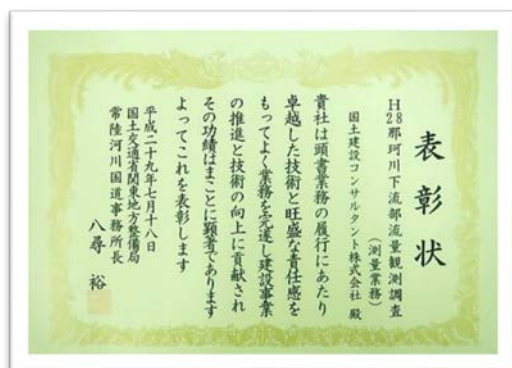 表彰状
H28那珂川下流部流量観測調査
（測量業務）
国土建設コンサルタント株式会社 殿
貴社は頭書業務の履行にあたり
卓越した技術と旺盛な責任感を
もってよく業務を完遂し建設事業
の推進と技術の向上に貢献され
その功績はまことに顕著であります
よってこれを表彰します
平成二十九年七月十八日
国土交通省関東地方整備局
常陸河川国道事務所長
八尋 裕